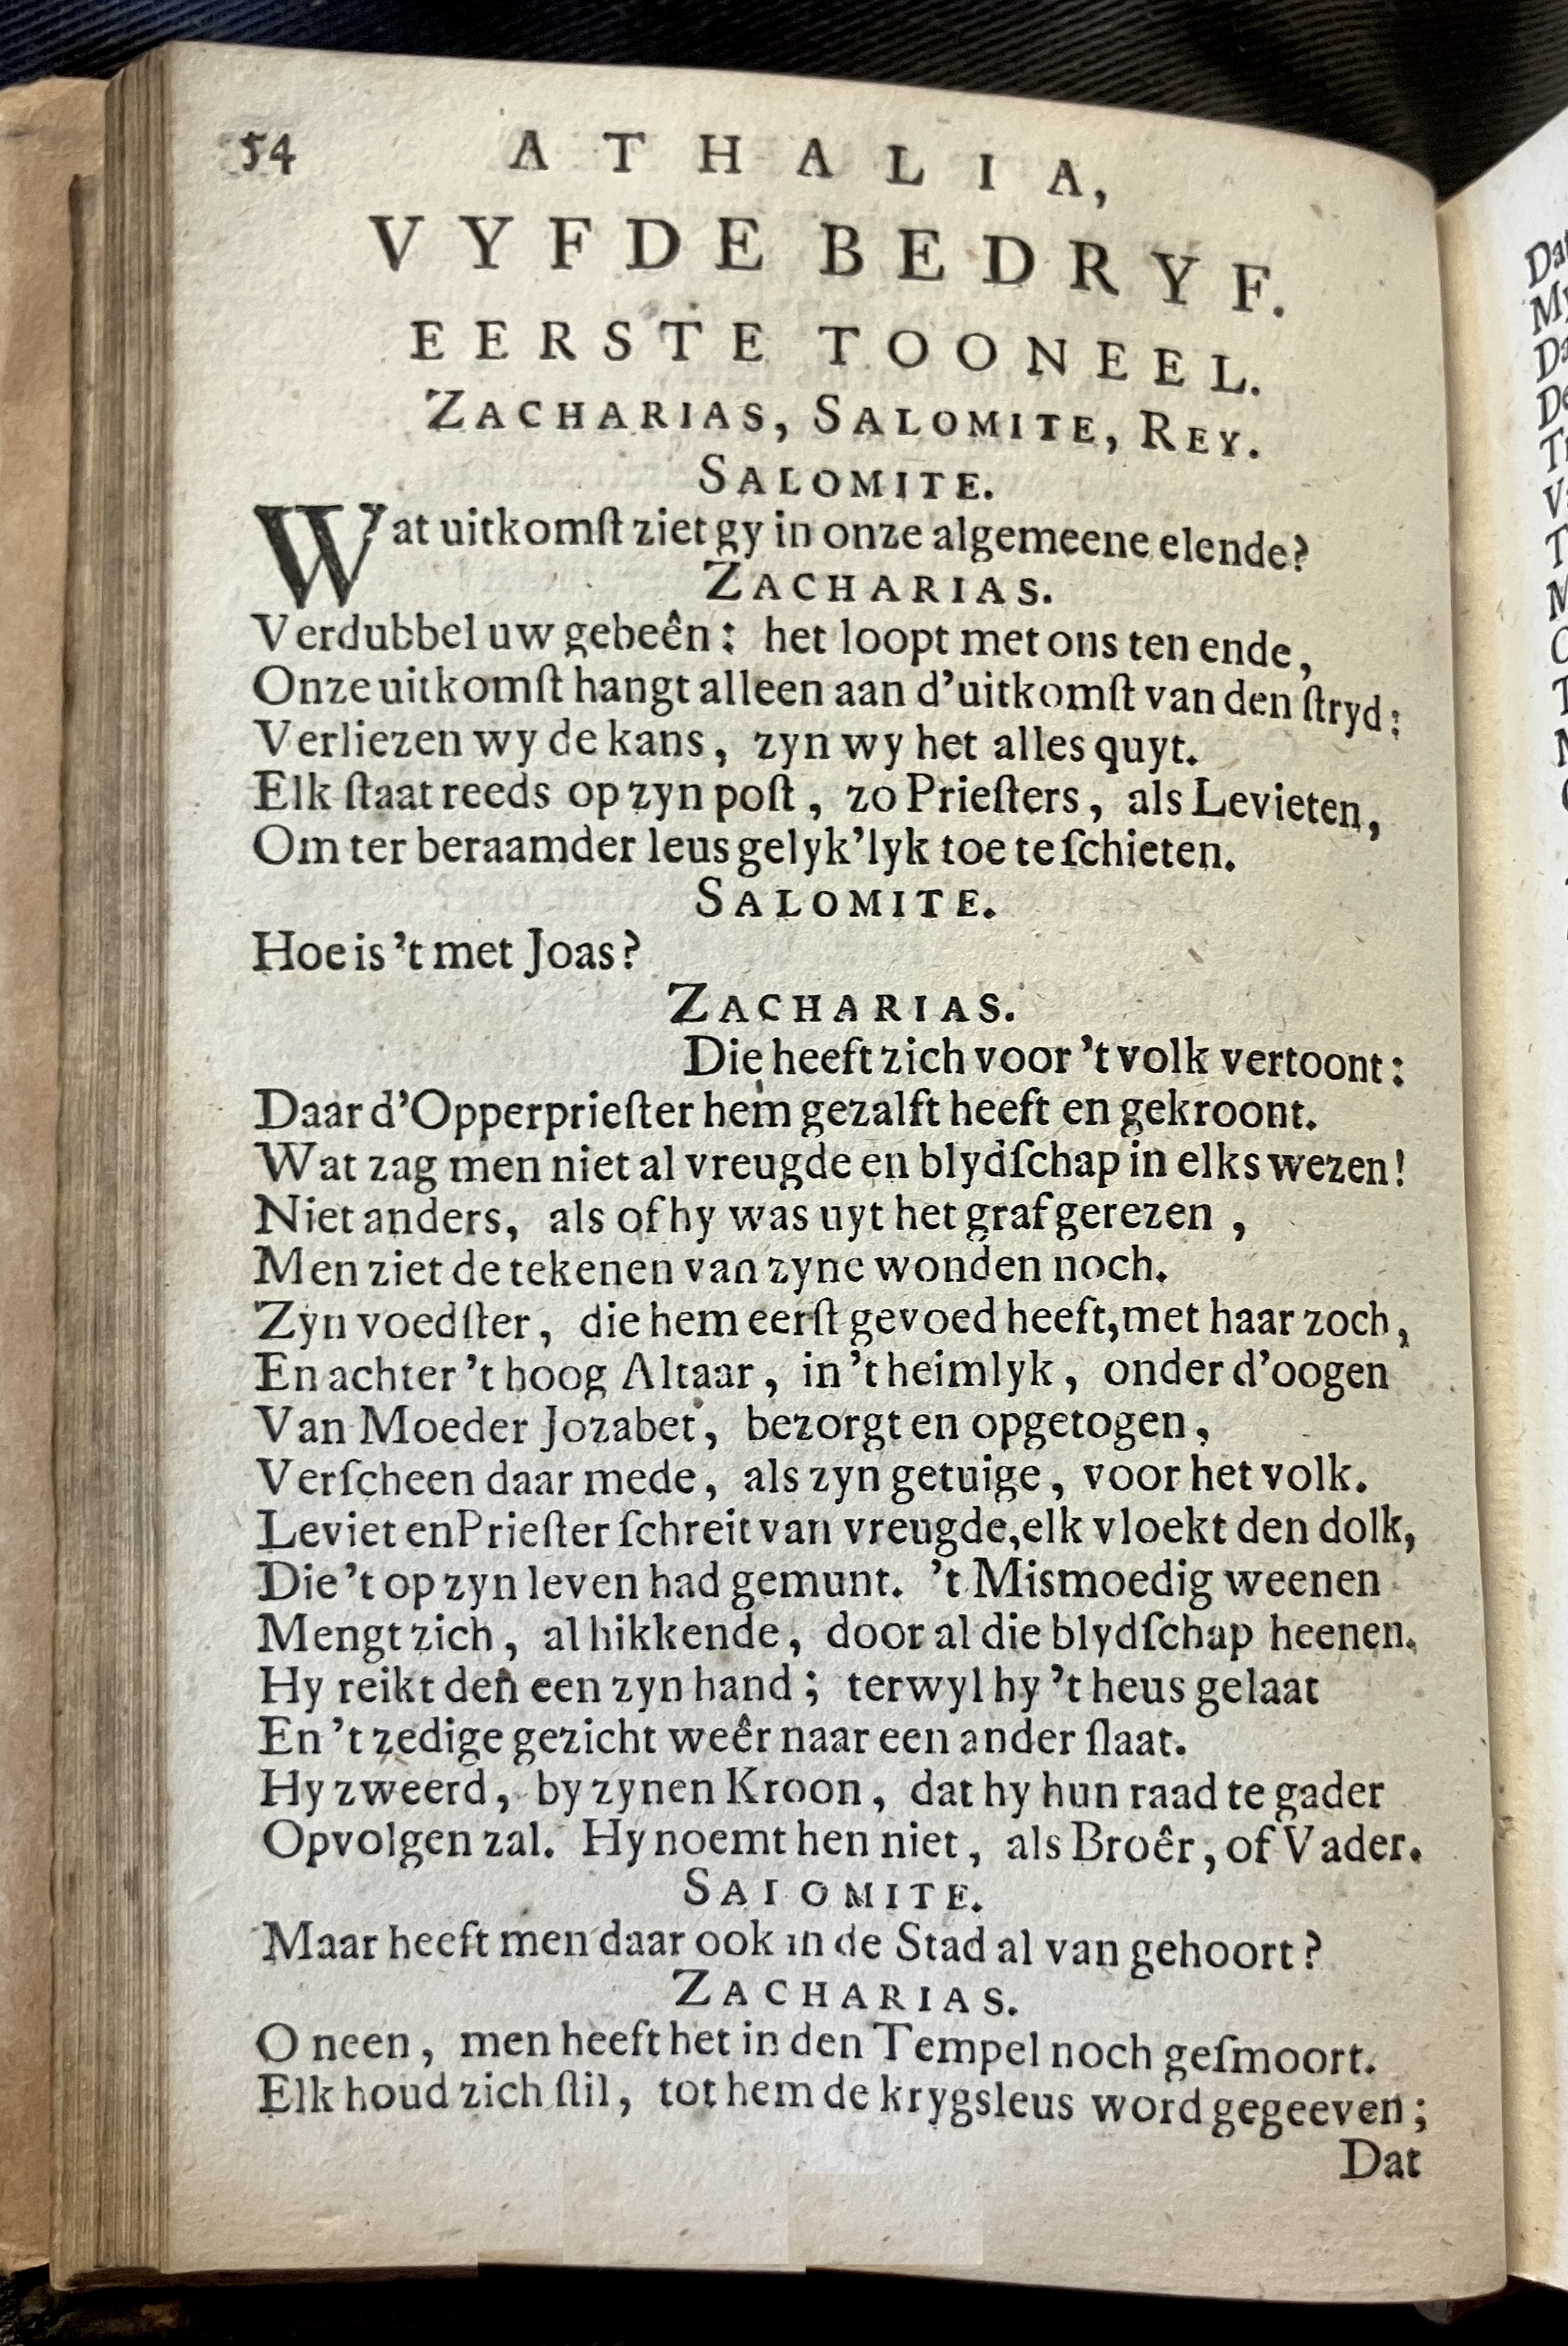 54 ATHALIA,
VYFDE BEDRYF.
EERSTE TOONEEL.
ZACHARIAS, SALOMITE, REY.
SALOMITE.
Wat uitkomſt ziet gy in onze algemeene elende?
ZACHARIAS.
Verdubbel uw gebeên: het loopt met ons ten ende,
Onze uitkomſt hangt alleen aan d'uitkomſt van den ſtryd:
Verliezen wy de kans, zyn wy het alles quyt.
Elk ſtaat reeds op zyn poſt, zo Prieſters, als Levieten,
Om ter beraamder leus gelyk'lyk toe te ſchieten.
SALOMITE.
Hoe is 't met Joas?
ZACHARIAS.
Die heeft zich voor 't volk vertoont:
Daar d'Opperprieſter hem gezalft heeft en gekroont.
Wat zag men niet al vreugde en blydſchap in elks wezen!
Niet anders, als of hy was uyt het graf gerezen,
Men ziet de tekenen van zyne wonden noch.
Zyn voedſter, die hem eerſt gevoed heeft, met haar zoch,
En achter 't hoog Altaar, in 't heimlyk, onder d'oogen
Van Moeder Jozabet, bezorgt en opgetogen,
Verſcheen daar mede, als zyn getuige, voor het volk.
Leviet en Prieſter ſchreit van vreugde, elk vloekt den dolk,
Die 't op zyn leven had gemunt. 't Mismoedig weenen
Mengt zich, al hikkende, door al die blydſchap heenen.
Hy reikt den een zyn hand; terwyl hy 't heus gelaat
En 't zedige gezicht weêr naar een ander ſlaat.
Hy zweerd, by zynen Kroon, dat hy hun raad te gader
Opvolgen zal. Hy noemt hen niet, als Broêr, of Vader.
SALOMITE.
Maar heeft men daar ook in de Stad al van gehoort?
ZACHARIAS.
O neen, men heeft het in den Tempel noch geſmoort.
Elk houd zich ſtil, tot hem de krygsleus word gegeeven;
Dat